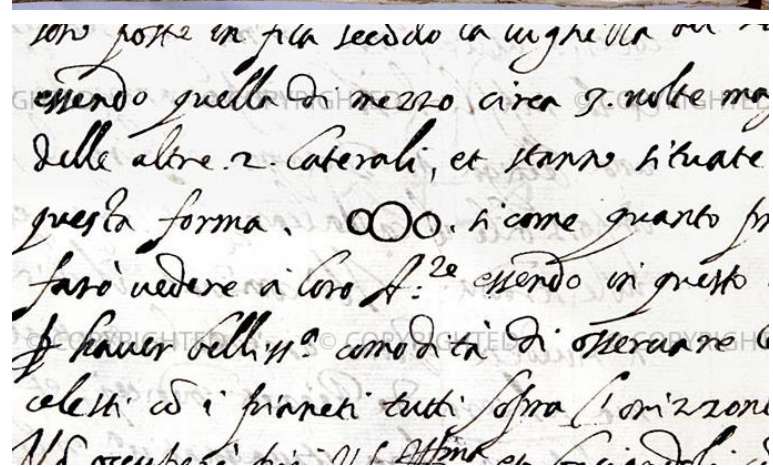 sono poste in fila secōdo la lūghezza del
essendo quella di mezzo circa 3. volte mag
delle altre .2. laterali, et stanno situate
questa forma. oOo. si come quanto pr
farò vedere a loro A.ze essendo in questo
hauer belliss.a comodità di osseruare
celesti cō i pianeti tutti sopra l'orizzon
COPYRIGHTED © COPYRIGHTED